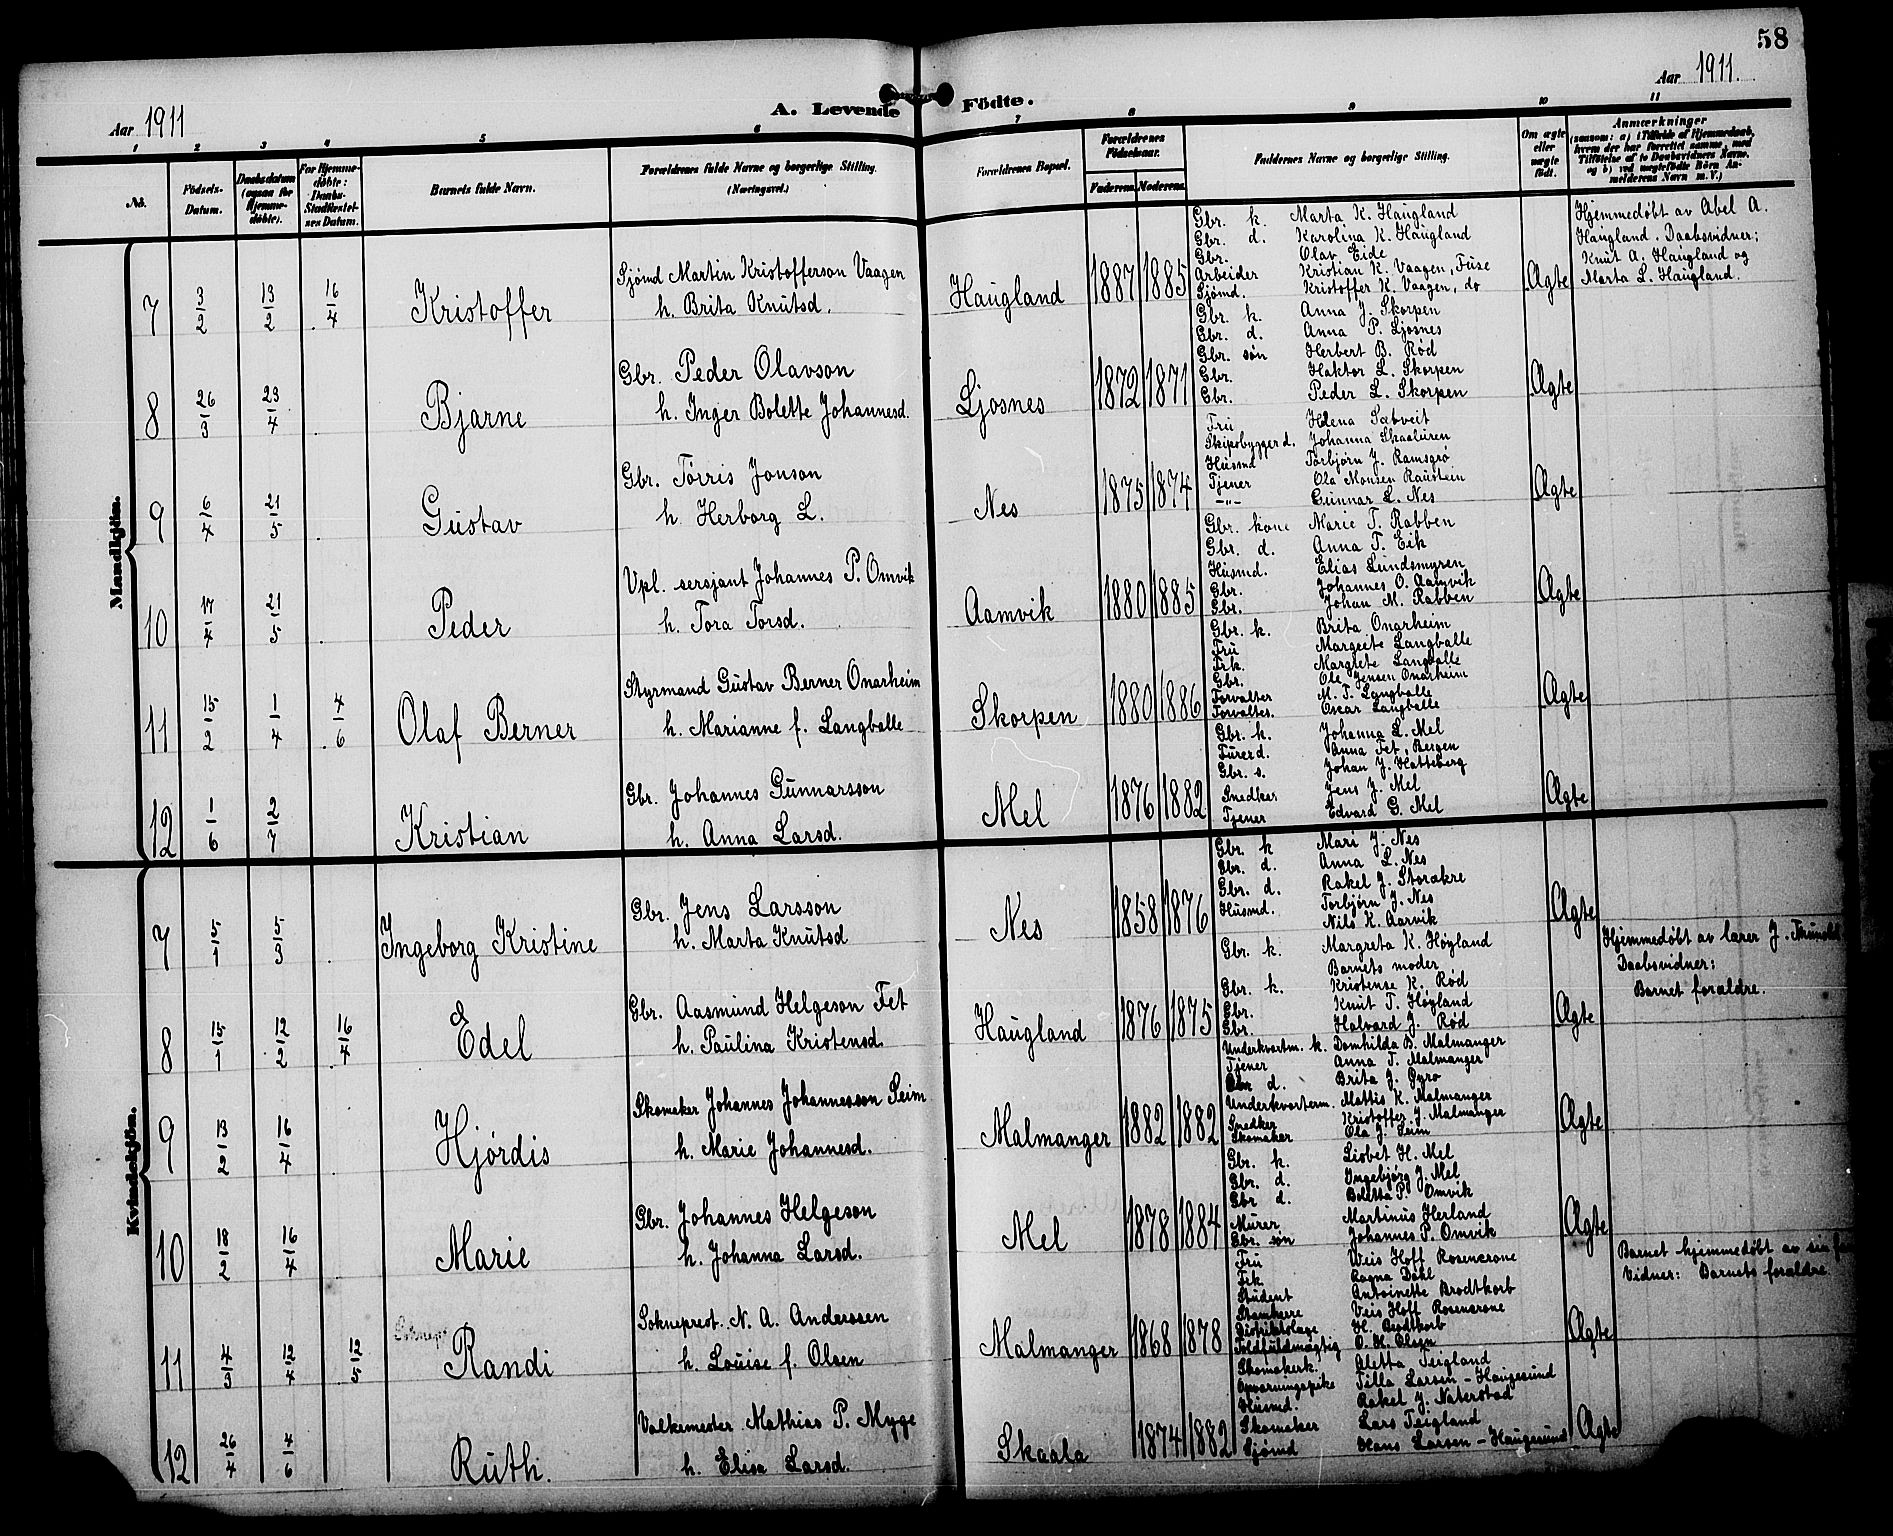 58
Aar 1911
A. Levende Födte.
Aar 1911.
1 2 3 4 5 6 7 8 9 10 11
No.
Födsels-Datum.
Daabsdatum (ogsaa for Hjemmedöbte).
For Hjemmedöbte: Daabs-Stadfæstelsens Datum.
Barnets fulde Navn.
Forældrenes fulde Navne og borgerlige Stilling. (Næringsvei.)
Forældrenes Bopæl.
Forældrenes Födselsaar.
Faderens. Moderens.
Faddernes Navne og borgerlige Stilling.
Om ægte eller uægte födt.
Anmærkninger
(saasom: a) i Tilfælde af Hjemmedaab, hvem der har forrettet samme, med Tilföielse af to Daabsvidners Navne, og b) ved uægtefödte Börn Anmelderens Navn m. V.)
Mandkjön.
7 3/2 13/2 16/4 Kristoffer
Sjömd Martin Kristofferson Vaagen
h. Brita Knutsd.
Haugland 1887 1885
Gbr. k. Marta K. Haugland
Gbr. d. Karolina K. Haugland
Gbr. Olav Eide
Arbeider Kristian K. Vaagen, Fuse
Sjömd. Kristoffer K. Vaagen, do
Ægte
Hjemmedøbt av Abel A.
Haugland. Daabsvidner;
Knut A. Haugland og
Marta L. Haugland.
8 26/3 23/4 Bjarne
Gbr. Peder Olavson
h. Inger Bolette Johannesd.
Ljosnes 1872 1871
Gbr. k. Anna J. Skorpen
Gbr. d. Anna P. Ljosnes
Gbr. søn Herbert B. Rød
Gbr. Haktor L. Skorpen
Gbr. Peder L. Skorpen
Ægte
9 6/4 21/5 Gustav
Gbr. Torris Jonson
h. Herborg L.
Nes 1875 1874
Fru Helena Sæbveit
Skipsbygger d. Johanna Skaaluren
Husmd Torbjørn J. Ramsgrø
Tjener Ola Monsen Raustein
-"- Gunnar L. Nes
Ægte
10 17/4 21/5 Peder
Vpl. sersjant Johannes P. Omvik
h. Tora Torsd.
Aamvik 1880 1885
Gbr. kone Marie T. Rabben
Gbr. d. Anna T. Eik
Husmd. Elias Lundsmyren
Gbr. Johannes O. Aamvik
Gbr. Johan M. Rabben
Ægte
11 15/2 1/4 4/6 Olaf Berner
Styrmand Gustav Berner Onarheim
h. Marianne f. Langballe
Skorpen 1880 1886
Gbr. k. Brita Onarheim
Fru Margrete Langballe
Frk. Margrete Langballe
Gbr. Ole Jensen Onarheim
Forvalter M. T. Langballe
Forvalter. Oscar Langballe
Ægte
12 1/6 2/7 Kristian
Gbr. Johannes Gunnarsson
h. Anna Larsd.
Mel 1876 1882
Gbr. k. Johanna L. Mel
Furer d. Anna Fet, Bergen
Gbr. s. Johan J. Hatteberg
Snedker Jens J. Mel
Tjener Edvard G. Mel
Ægte
Kvindekjön.
7 5/1 5/3 Ingeborg Kristine
Gbr. Jens Larsson
h. Marta Knutsd
Nes 1858 1876
Gbr. k Mari J. Nes
Gbr. d. Anna L. Nes
Gbr. d. Rakel J. Storakre
Husmd. Torbjørn J. Nes
Nils K. Aarvik
Ægte
8 15/1 12/2 16/4 Edel
Gbr. Aasmund Helgeson Fet
h. Paulina Kristensd.
Haugland 1876 1875
Gbr. k. Margreta K. Høyland
Barnets moder
Gbr. k. Kristense K. Rød
Gbr. Knut T. Høyland
Gbr. Halvard J. Rød
Ægte
Hjemmedøbt av lærer J.
Daabsvidner:
Barnet forældre.
9 13/2 16/4 Hjørdis
Skomaker Johannes Johannesson Seim
h. Marie Johannesd.
Malmanger 1882 1882
Underkvartm. k. Domhilda B. Malmanger
Tjener Anna T. Malmanger
Gbr d. Brita J. Gyro
Underkvarterm. Mattis K. Malmanger
Snedker Kristoffer J. Malmanger
Skomaker Ola J. Seim
Ægte
10 18/2 16/4 Marie
Gbr. Johannes Helgeson
h. Johanna Larsd.
Mel 1878 1884
Gbr. k. Lisbet H. Mel
Gbr. d. Ingebjørg J. Mel
Gbr d. Boletta P. Omvik
Murer Martinus Herland
Gbr. søn Johannes P. Omvik
Ægte
11 4/3 12/4 12/5 Randi
Sokneprest. N. A. Anderssen
h. Louise f. Olsen
Malmanger 1868 1878
Fru Weis Hoff Rosencrone
Frk. Ragna Dahl
Student Antoinette Brodtkorb
Stamherre Veis Hoff Rosencrone
Distriktslæge H. Brodtkorb
Toldfuldmægtig O. H. Olsen
Ægte
Barnet hjemmedøbt av sin
Vidner: Barnets forældre
12 26/4 4/6 Ruth.
Valkemester Mathias P. Myge
h. Elisa Larsd.
Skaala 1874 1882
Skomakerk. Aletta Teigland
Opvarningspike Tilla Larsen - Haugesund
Husmd. Rakel J. Naterstad
Skomaker Lars Teigland
Sjömd Hans Larsen - Haugesund
Ægte